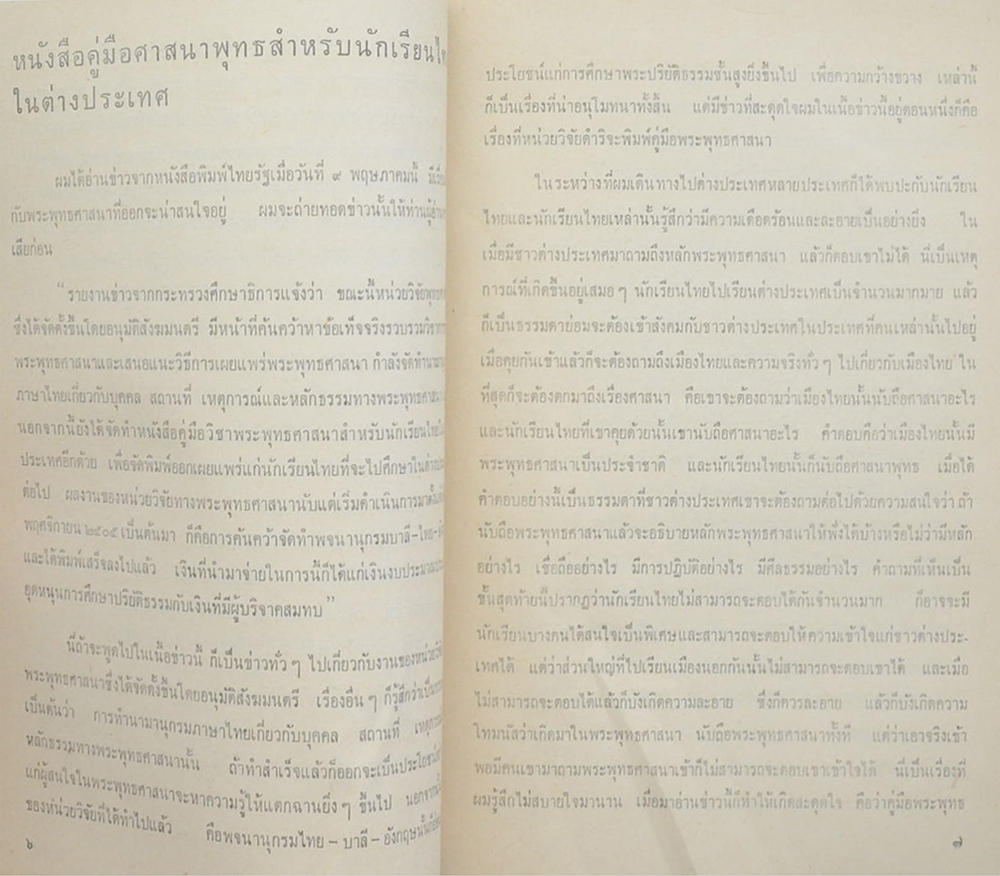 หนังสือคู่มือศาสนาพุทธสำหรับนักเรียนไท
ในต่างประเทศ
ผมได้อ่านข่าวจากหนังสือพิมพ์ไทยรัฐเมื่อวันที่ ๙ พฤษภาคมนี้ มีเรื่
กับพระพุทธศาสนาที่ออกจะน่าสนใจอยู่ ผมจะถ่ายทอดข่าวนั้นให้ท่านผู้อ่าน
เสียก่อน
“รายงานข่าวจากกระทรวงศึกษาธิการแจ้งว่า ขณะนี้หน่วยวิจัยพุทธ
ซึ่งได้จัดตั้งขึ้นโดยอนุมัติสังฆมนตรี มีหน้าที่ค้นคว้าหาข้อเท็จจริงรวบรวมวิชา
พระพุทธศาสนาและเสนอแนะวิธีการเผยแพร่พระพุทธศาสนา กำลังจัดทำนามา
ภาษาไทยเกี่ยวกับบุคคล สถานที่ เหตุการณ์และหลักธรรมทางพระพุทธศาสนา
นอกจากนี้ยังได้จัดทำหนังสือคู่มือวิชาพระพุทธศาสนาสำหรับนักเรียนไทยใน
ประเทศอีกด้วย เพื่อจัดพิมพ์ออกเผยแพร่แก่นักเรียนไทยที่จะไปศึกษาในต่างประ
ต่อไป ผลงานของหน่วยวิจัยทางพระพุทธศาสนานับแต่เริ่มดำเนินการมาตั้งแต่
พฤศจิกายน ๒๕๐๕ เป็นต้นมา ก็คือการค้นคว้าจัดทำพจนานุกรมบาลี-ไทย-อัง
และได้พิมพ์เสร็จลงไปแล้ว เงินที่นำมาจ่ายในการนี้ก็ได้แก่เงินงบประมาณประ
อุดหนุนการศึกษาปริยัติธรรมกับเงินที่มีผู้บริจาคสมทบ”
นี่ถ้าจะพูดไปในเนื้อข่าวนี้ ก็เป็นข่าวทั่ว ๆ ไปเกี่ยวกับงานของหน่วยวิจัย
พระพุทธศาสนาซึ่งได้จัดตั้งขึ้นโดยอนุมัติสังฆมนตรี เรื่องอื่น ๆ ก็รู้สึกว่าเป็นธรรม
เป็นต้นว่า การทำนามานุกรมภาษาไทยเกี่ยวกับบุคคล สถานที่ เหตุการณ์
หลักธรรมทางพระพุทธศาสนานั้น ถ้าทำสำเร็จแล้วก็ออกจะเป็นประโยชน์
แก่ผู้สนใจในพระพุทธศาสนาจะหาความรู้ให้แตกฉานยิ่ง ๆ ขึ้นไป นอกจากนั้น
ของหน่วยวิจัยที่ได้ทำไปแล้ว คือพจนานุกรมไทย – บาลี – อังกฤษนั้นก็
๖
ประโยชน์แก่การศึกษาพระปริยัติธรรมชั้นสูงยิ่งขึ้นไป เพื่อความกว้างขวาง เหล่านี้
ก็เป็นเรื่องที่น่าอนุโมทนาทั้งสิ้น แต่มีข่าวที่สะดุดใจผมในเนื้อข่าวนี้อยู่ตอนหนึ่งก็คือ
เรื่องที่หน่วยวิจัยดำริจะพิมพ์คู่มือพระพุทธศาสนา
ในระหว่างที่ผมเดินทางไปต่างประเทศหลายประเทศก็ได้พบปะกับนักเรียน
ไทยและนักเรียนไทยเหล่านั้นรู้สึกว่ามีความเดือดร้อนและละอายเป็นอย่างยิ่ง ใน
เมื่อมีชาวต่างประเทศมาถามถึงหลักพระพุทธศาสนา แล้วก็ตอบเขาไม่ได้ นี่เป็นเหตุ
การณ์ที่เกิดขึ้นอยู่เสมอ ๆ นักเรียนไทยไปเรียนต่างประเทศเป็นจำนวนมากมาย แล้ว
ก็เป็นธรรมดาย่อมจะต้องเข้าสังคมกับชาวต่างประเทศในประเทศที่คนเหล่านั้นไปอยู่
เมื่อคุยกันเข้าแล้วก็จะต้องถามถึงเมืองไทยและความจริงทั่ว ๆ ไปเกี่ยวกับเมืองไทย ใน
ที่สุดก็จะต้องตกมาถึงเรื่องศาสนา คือเขาจะต้องถามว่าเมืองไทยนั้นนับถือศาสนาอะไร
และนักเรียนไทยที่เขาคุยด้วยนั้นเขานับถือศาสนาอะไร คำตอบคือว่าเมืองไทยนั้นมี
พระพุทธศาสนาเป็นประจำชาติ และนักเรียนไทยนั้นก็นับถือศาสนาพุทธ เมื่อได้
คำตอบอย่างนี้เป็นธรรมดาที่ชาวต่างประเทศเขาจะต้องถามต่อไปด้วยความสนใจว่า ถ้า
นับถือพระพุทธศาสนาแล้วจะอธิบายหลักพระพุทธศาสนาให้ฟังได้บ้างหรือไม่ว่ามีหลัก
อย่างไร เชื่อถืออย่างไร มีการปฏิบัติอย่างไร มีศีลธรรมอย่างไร คำถามที่เห็นเป็น
ขั้นสุดท้ายนี้ปรากฏว่านักเรียนไทยไม่สามารถจะตอบได้กันจำนวนมาก ก็อาจจะมี
นักเรียนบางคนได้สนใจเป็นพิเศษและสามารถจะตอบให้ความเข้าใจแก่ชาวต่างประ-
เทศได้ แต่ว่าส่วนใหญ่ที่ไปเรียนเมืองนอกกันนั้นไม่สามารถจะตอบเขาได้ และเมื่อ
ไม่สามารถจะตอบได้แล้วก็บังเกิดความละอาย ซึ่งก็ควรละอาย แล้วก็บังเกิดความ
โทมนัสว่าเกิดมาในพระพุทธศาสนา นับถือพระพุทธศาสนาทั้งที แต่ว่าเอาจริงเข้า
พอมีคนเขามาถามพระพุทธศาสนาเข้าก็ไม่สามารถจะตอบเขาเข้าใจได้ นี่เป็นเรื่องที่
ผมรู้สึกไม่สบายใจมานาน เมื่อมาอ่านข่าวนี้ก็ทำให้เกิดสะดุดใจ คือว่าคู่มือพระพุทธ
๗